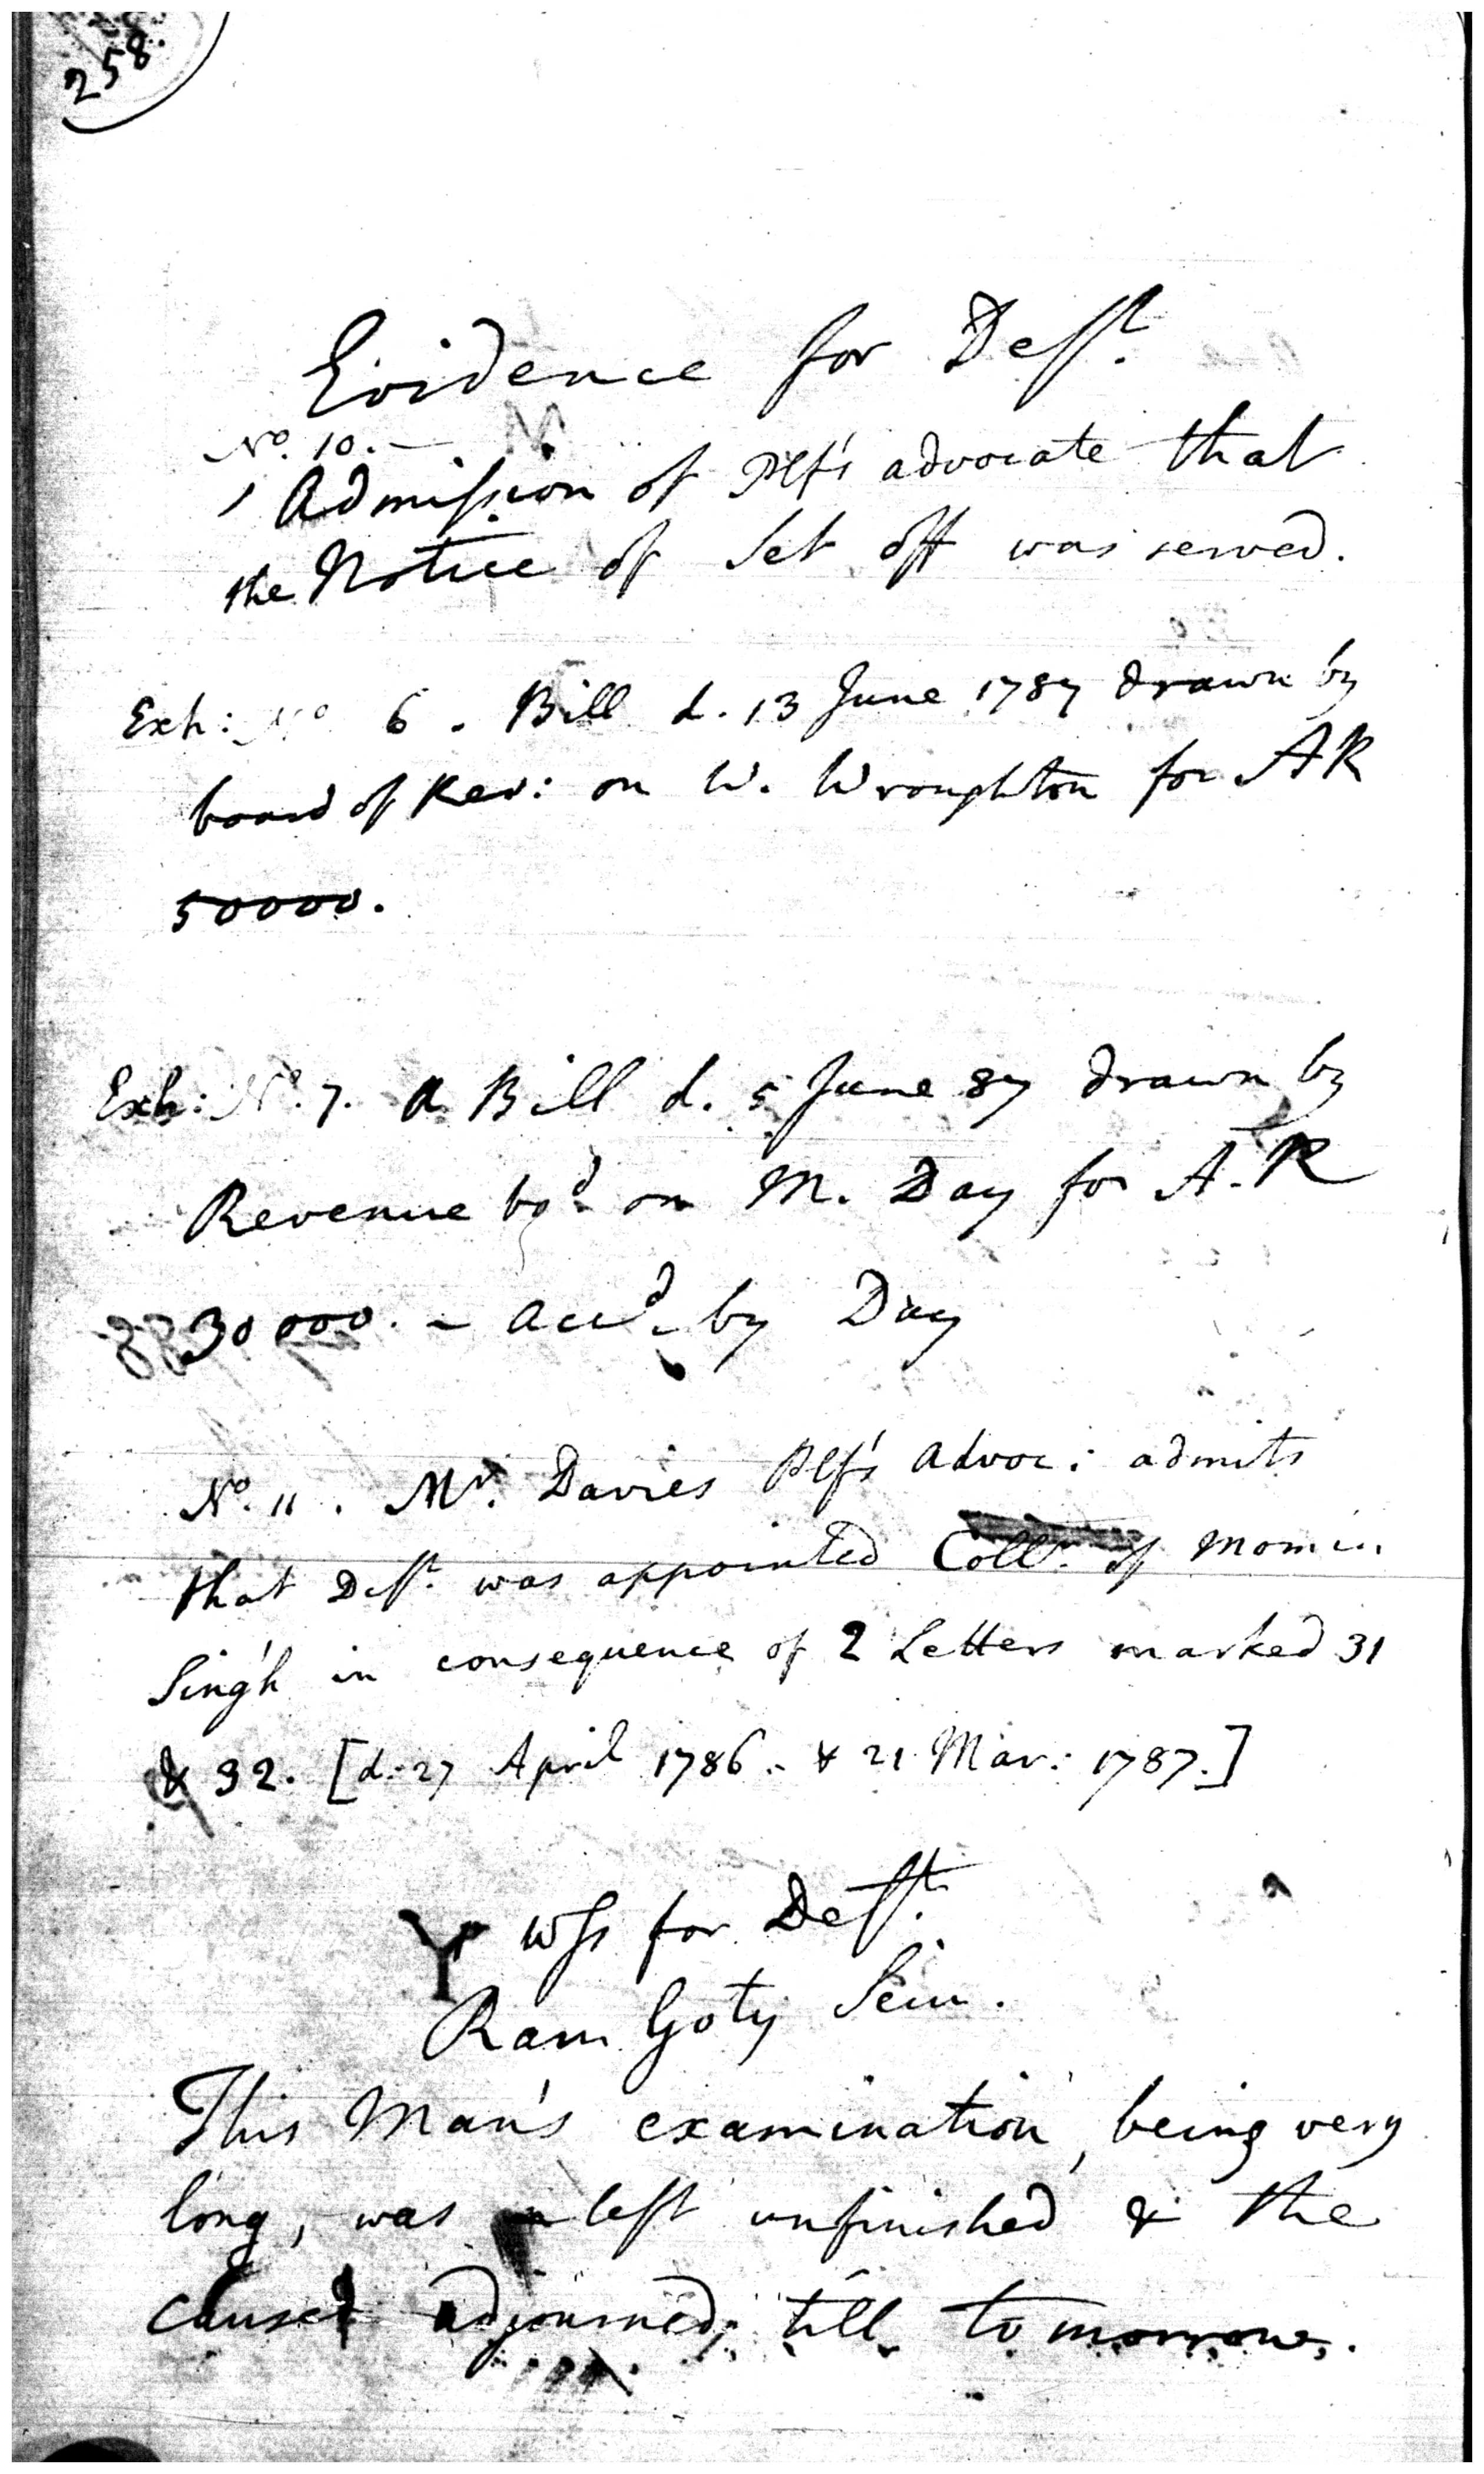 258.
Evidence for Deft.
No. 10. —
Admission of Plf's advocate that
the Notice of Set off was served.
Exh: No 6. Bill d. 13 June 1787 drawn by
board of Rev: on W. Wroughton for AR
50000.
Exh: No. 7. A Bill d. 5 June 87 drawn by
Revenue bod. on M. Day for A.R
30000. - accd. by Day
No. 11. Mr. Davies Plf's advoc: admits
that Deft. was appointed Collr. of Momin
Singh in consequence of 2 Letters marked 31
& 32. [d. 27 April 1786. & 21 Mar: 1787.]
Wss for Deft.
Ram Goty Sein.
This Man's examination, being very
long, was left unfinished & the
cause adjourned till to morrow.